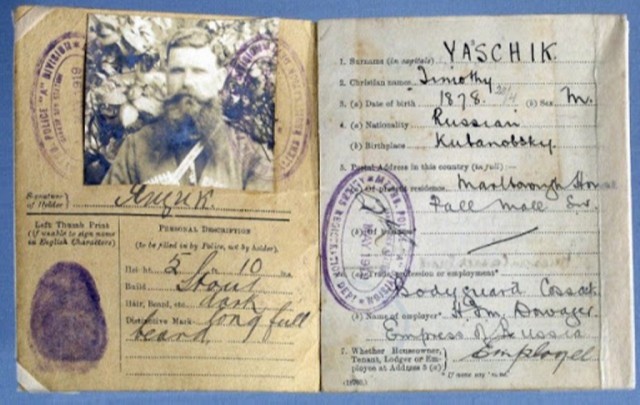 Signature
of Holder
Left Thumb Print
(if unable to sign name
in English Characters)
PERSONAL DESCRIPTION
(to be filled in by Police, not by holder).
Height 5 ft. 10 ins.
Build Stout
Hair, Beard, etc. dark
Distinctive Mark long full
beard
1. Surname (in capitals) YASCHIK
2. Christian names Timothy
3. (a) Date of birth 1878. (b) Sex M.
4. (a) Nationality Russian
(b) Birthplace Kubanobsky.
5. Postal Address in this country (in full):—
(a) Of present residence Marlborough House
Pall Mall S.W.
(b) Of
6. (a) Trade, profession or employment*
Bodyguard Cossack
(b) Name of employer* H.I.M. Dowager
Empress of Russia
7. Whether Householder,
Tenant, Lodger or Em-
ployee at Address 5 (a) Employee
* If none say "none."